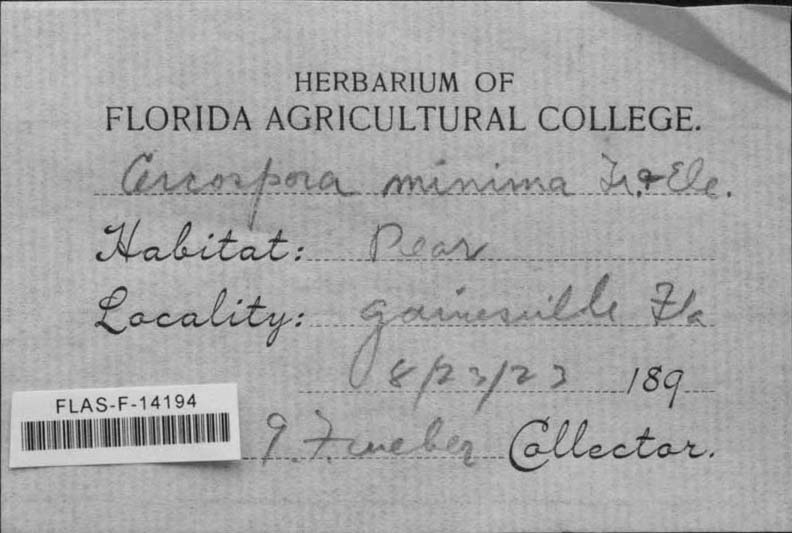 HERBARIUM OF
FLORIDA AGRICULTURAL COLLEGE.
Cercospora minima Tr. & Ele.
Habitat: Pear
Locality: Gainesville Fla
8/23/23 189
FLAS-F-14194
G. F. Weber Collector.